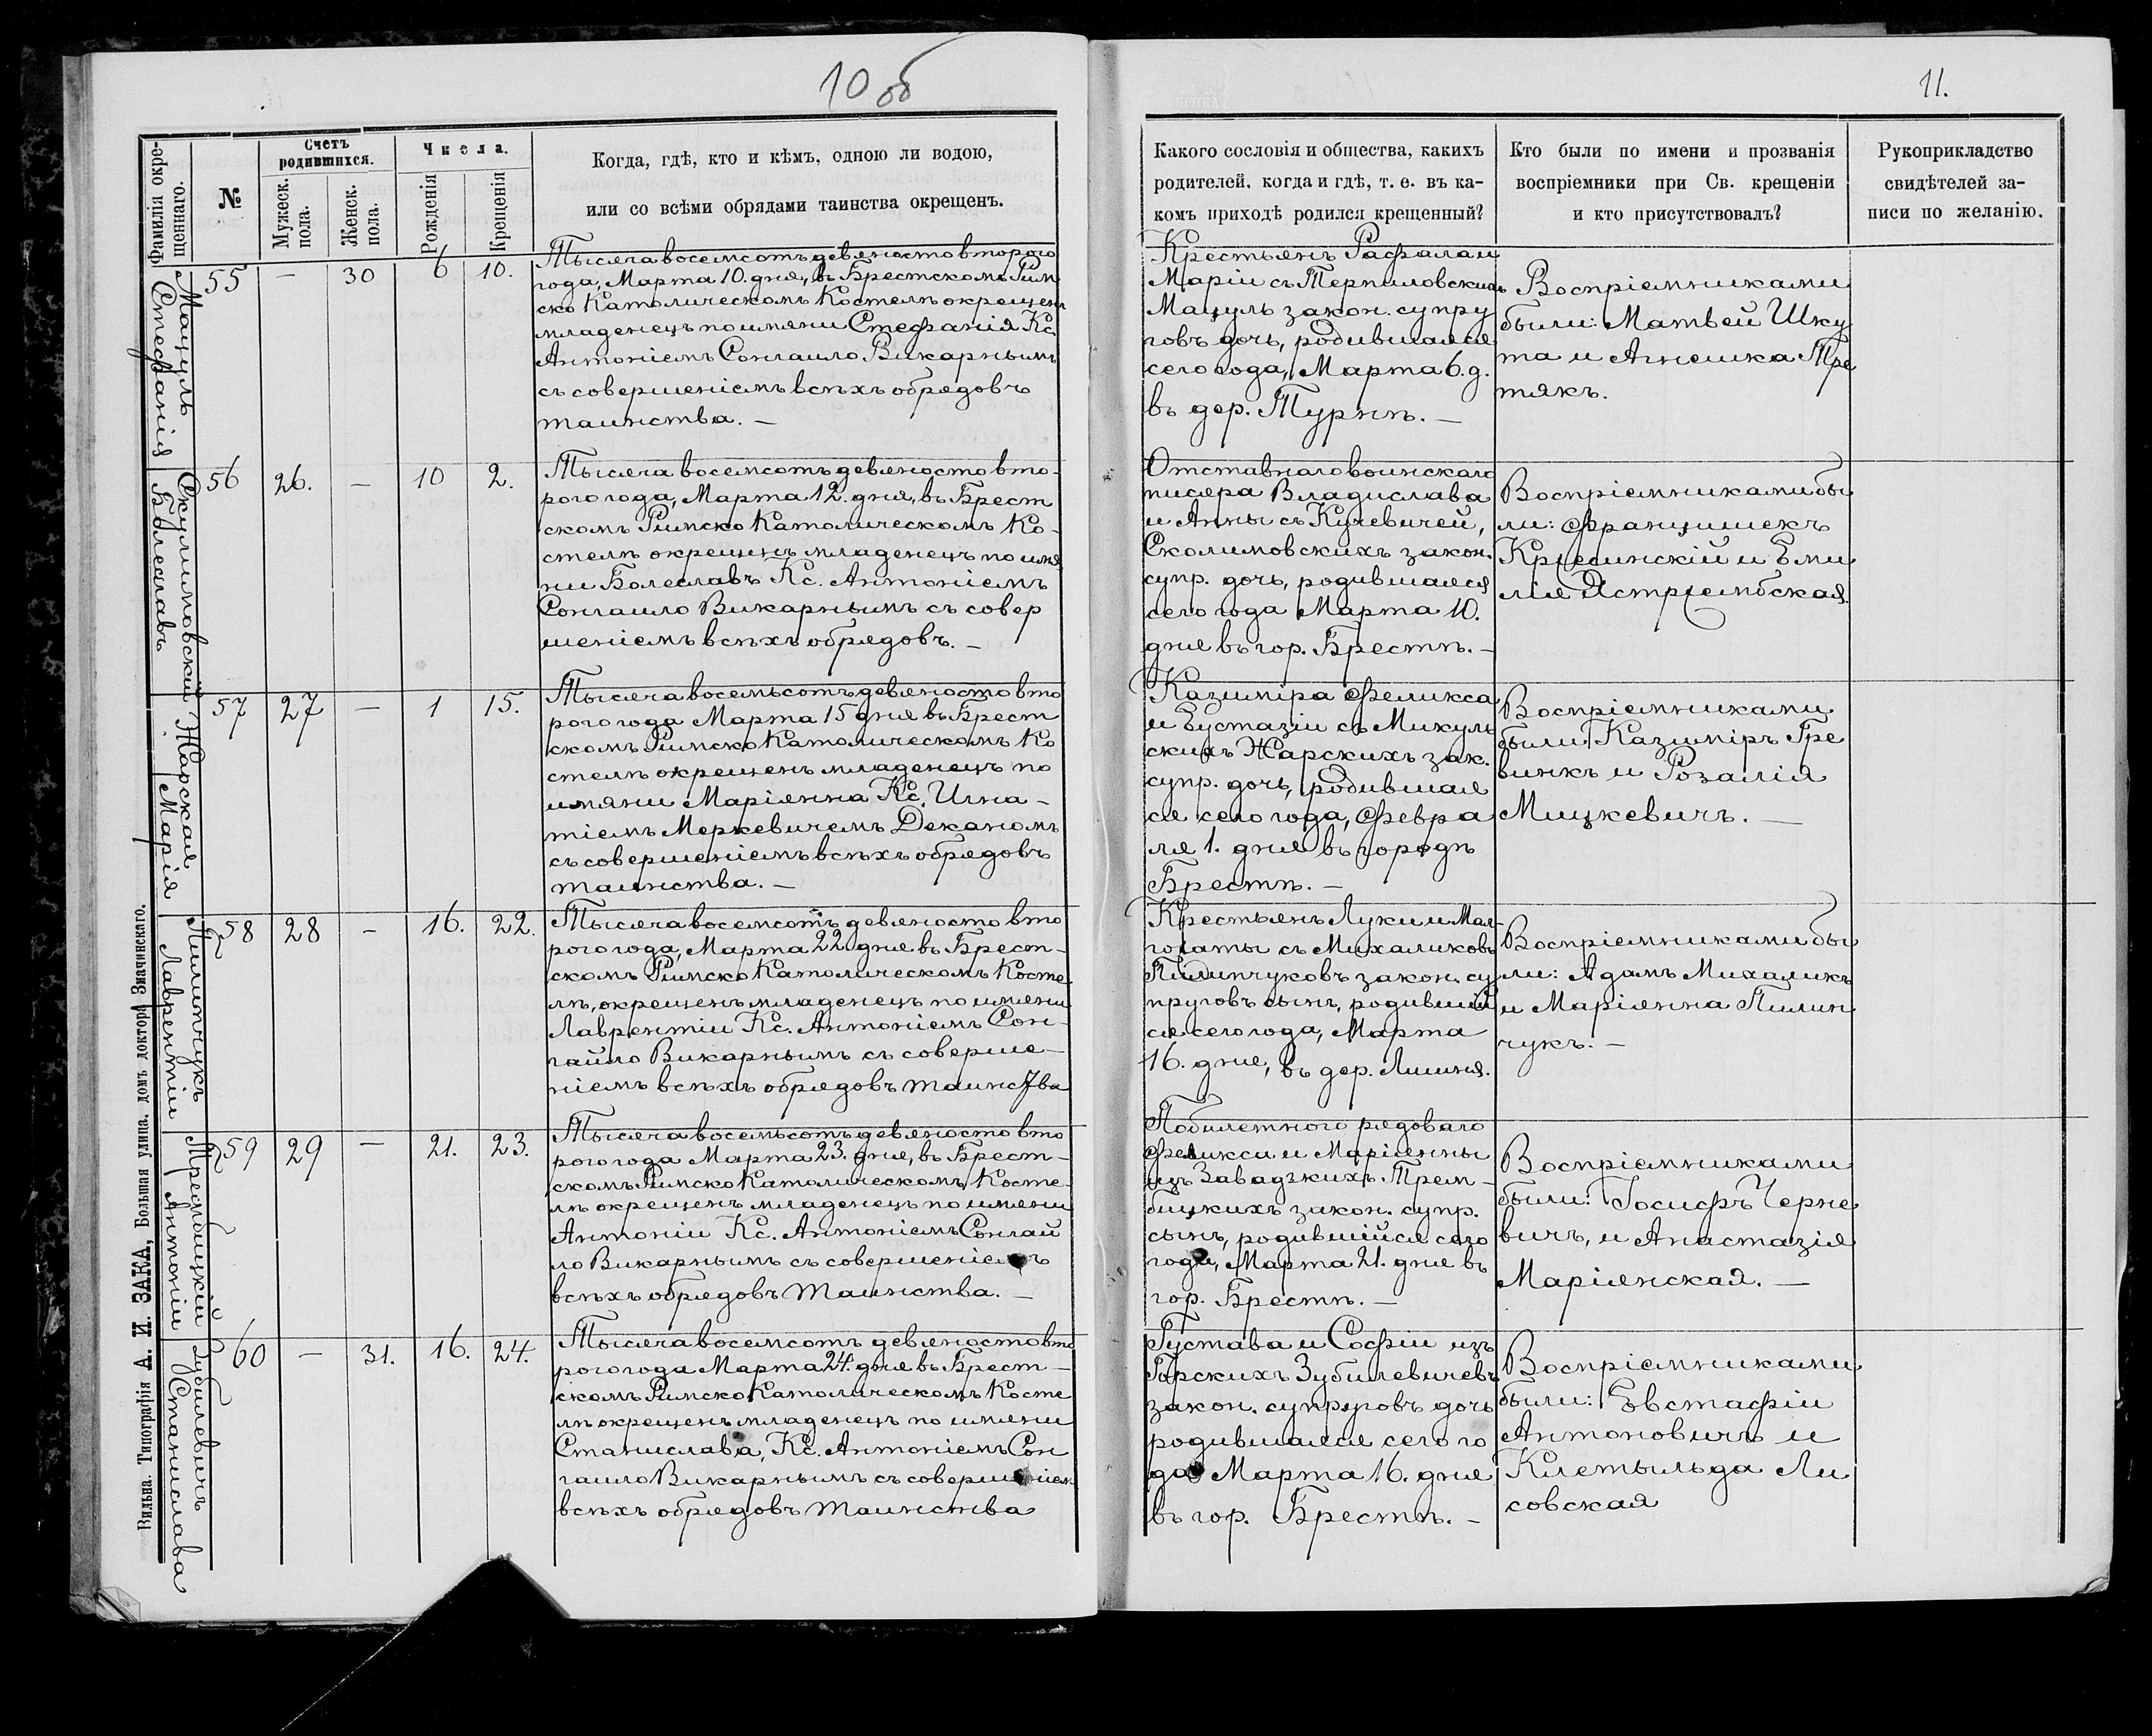 10 об
11.
Фамилія окре-
щеннаго.
№
Счетъ
родившихся.
Мужеск.
пола.
Женск.
пола.
Числа.
Рожденія
Крещенія
Когда, гдѣ, кто и кѣмъ, одною ли водою,
или со всѣми обрядами таинства окрещенъ.
Какого сословія и общества, какихъ
родителей, когда и гдѣ, т. е. въ ка-
комъ приходѣ родился крещенный?
Кто были по имени и прозванія
воспріемники при Св. крещеніи
и кто присутствовалъ?
Рукоприкладство
свидѣтелей за-
писи по желанію.
Мацуль
Стефанія
55 — 30 6 10.
Тысяча восемсотъ девяносто второго
года, Марта 10. дня, въ Брестскомъ Рим
ско Католическомъ Костелѣ окрещенъ
младенецъ по имяни Стефанія Кс.
Антоніемъ Сонгаило Викарнымъ
съ совершеніемъ всѣхъ обрядовъ
таинства. —
Крестьянъ Рафала и
Маріи съ
Мацуль закон. супру
говъ дочь, родившаяся
сего года, Марта 6. д.
въ дер. Турнѣ. —
Воспріемниками
были: Матвей Шку
та и Агнешка Тре
тякъ.
Скулимовскій
Болеславъ
56 26. — 10 2.
Тысяча восемсотъ девяносто вто-
рого года, Марта 12. дня, въ Брест
скомъ Римско Католическомъ Ко-
стелѣ окрещенъ младенецъ по имя
ни Болеславъ Кс. Антоніемъ
Сонгаило Викарнымъ съ совер
шеніемъ всѣхъ обрядовъ. —
Отставнаго воинскаго
писяра Владислава
и Анны съ
Сколимовскихъ закон.
супр. дочь, родившаяся
сего года Марта 10.
дня въ гор. Брестѣ. —
Воспріемниками бы
ли: Францишекъ
и Еми
лія Ястржембская.
Жарская
Марія
57 27 — 1 15.
Тысяча восемьсотъ девяносто вто
рого года Марта 15 дня въ Брест
скомъ Римско Католическомъ Ко
стелѣ окрещенъ младенецъ по
имяни Маріянна Кс. Игна-
тіемъ Меркевичемъ Деканомъ
съ совершеніемъ всѣхъ обрядовъ
таинства. —
Казиміра Феликса
и Еустазіи съ Микуль
скихъ Жарскихъ зак.
супр. дочь, родившая
ся сего года, Февра
ля 1. дня въ городѣ
Брестѣ. —
Воспріемниками
были Казиміръ Гре
винкъ и Розалія
Мицкевичъ. —
Пилипчукъ
Лаврентіи
58 28 — 16. 22.
Тысяча восемсотъ девяносто вто
рого года, Марта 22 дня въ Брест-
скомъ Римско Католическомъ Косте
лѣ, окрещенъ младенецъ по имяни
Лаврентіи Кс. Антоніемъ Сон-
гайло Викарнымъ съ соверше-
ніемъ всѣхъ обрядовъ таинства
Крестьянъ Луки и Мал-
гожаты съ Михаликовъ
Пилипчуковъ закон. су
пруговъ сынъ, родившій
ся сего года, Марта
16. дня, въ дер.
Воспріемниками бы
ли: Адамъ Михаликъ
и Маріянна Пилип
чукъ. —
Трембицкій
Антоніи
59 29 — 21. 23.
Тысяча восемьсотъ девяносто вто
рого года Марта 23. дня, въ Брест-
скомъ Римско Католическомъ Косте-
лѣ окрещенъ младенецъ по имяни
Антоніи Кс. Антоніемъ Сонгай
ло Викарнымъ съ совершеніемъ
всѣхъ обрядовъ Таинства. —
Побилетного рядоваго
Феликси и Маріянны
изъ Завадзкихъ Трем-
бицкихъ закон. супр.
сынъ, родившійся сего
года, Марта 21. дня въ
гор. Брестѣ. —
Воспріемниками
были: Іосифъ Черне
вичъ, и Анастазія
Маріянская. —
Зубилевичъ
Станислава
60 — 31. 16. 24.
Тысяча восемсотъ девяносто вто
рого года Марта 24. дня въ Брест-
скомъ Римско Католическомъ Косте
лѣ окрещенъ младенецъ по имяни
Станислава, Кс. Антоніемъ Сон
гаило Викарнымъ съ совершеніем
всѣхъ обрядовъ таинства
Густава и Софіи изъ
Горскихъ Зубилевичевъ
закон. супруговъ дочь
родившаяся сего го
да Марта 16. дня
въ гор. Брестѣ. —
Воспріемниками
были: Евстафіи
Антоновичъ и
Клетыльда Ли
совская
Вильна. Типографія А. И. ЗАКА, Большая улица. домъ доктора Значинскаго.